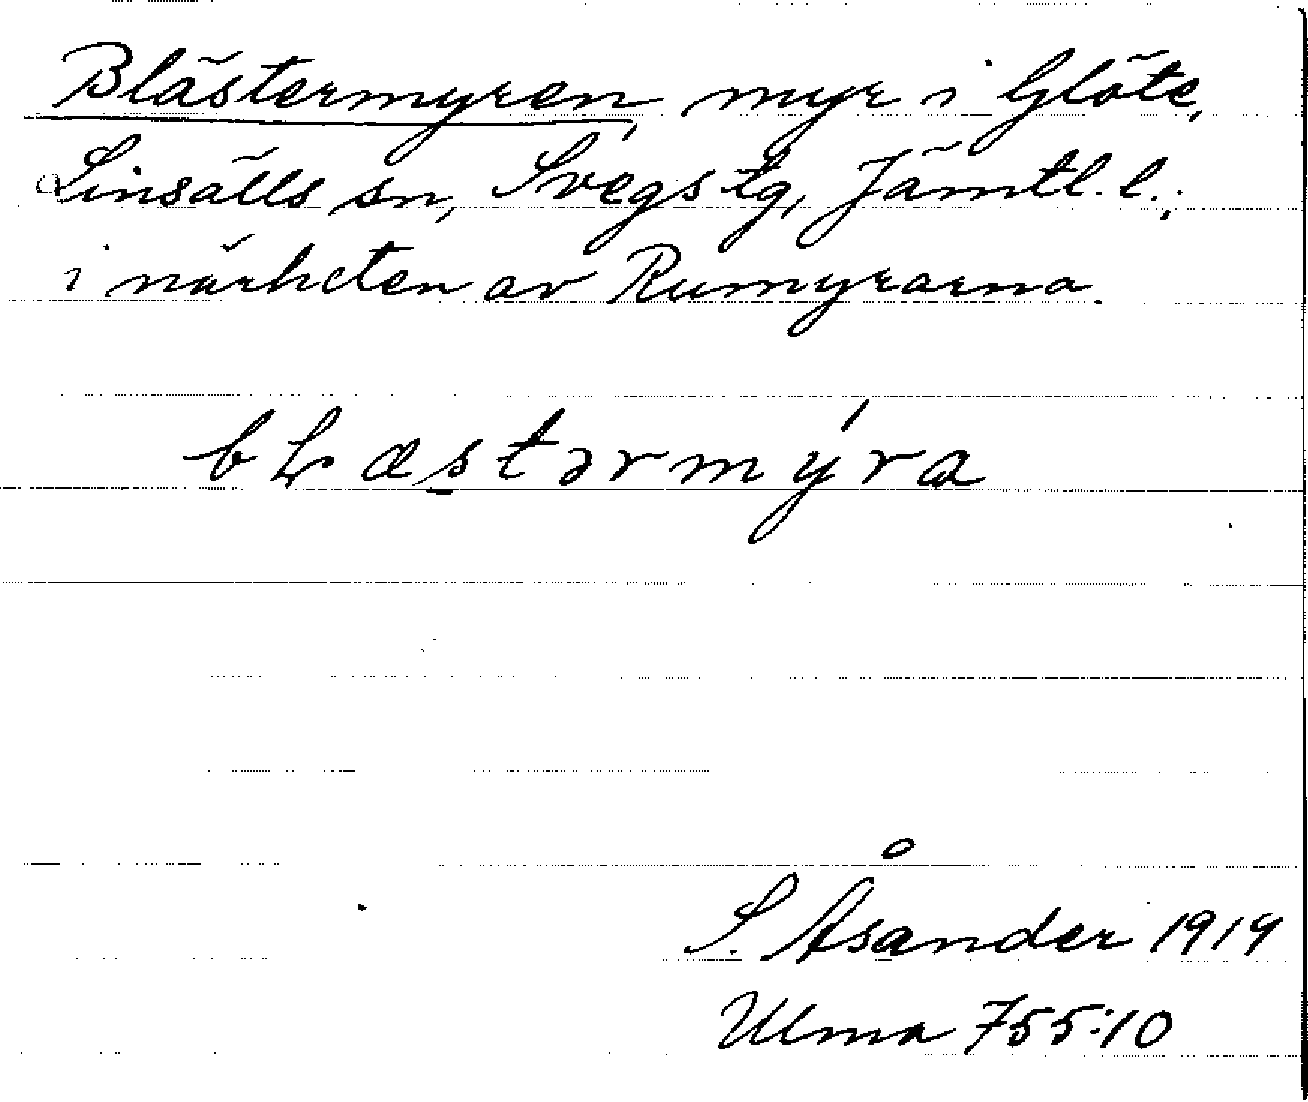 Blästermyren, myr i Glöte,
Linsälls sn, Svegs tg, Jämtl. l.,
i närheten av Rumyrarna.
bLæstərmýra
S. Åsander 1919
Ulma 755:10